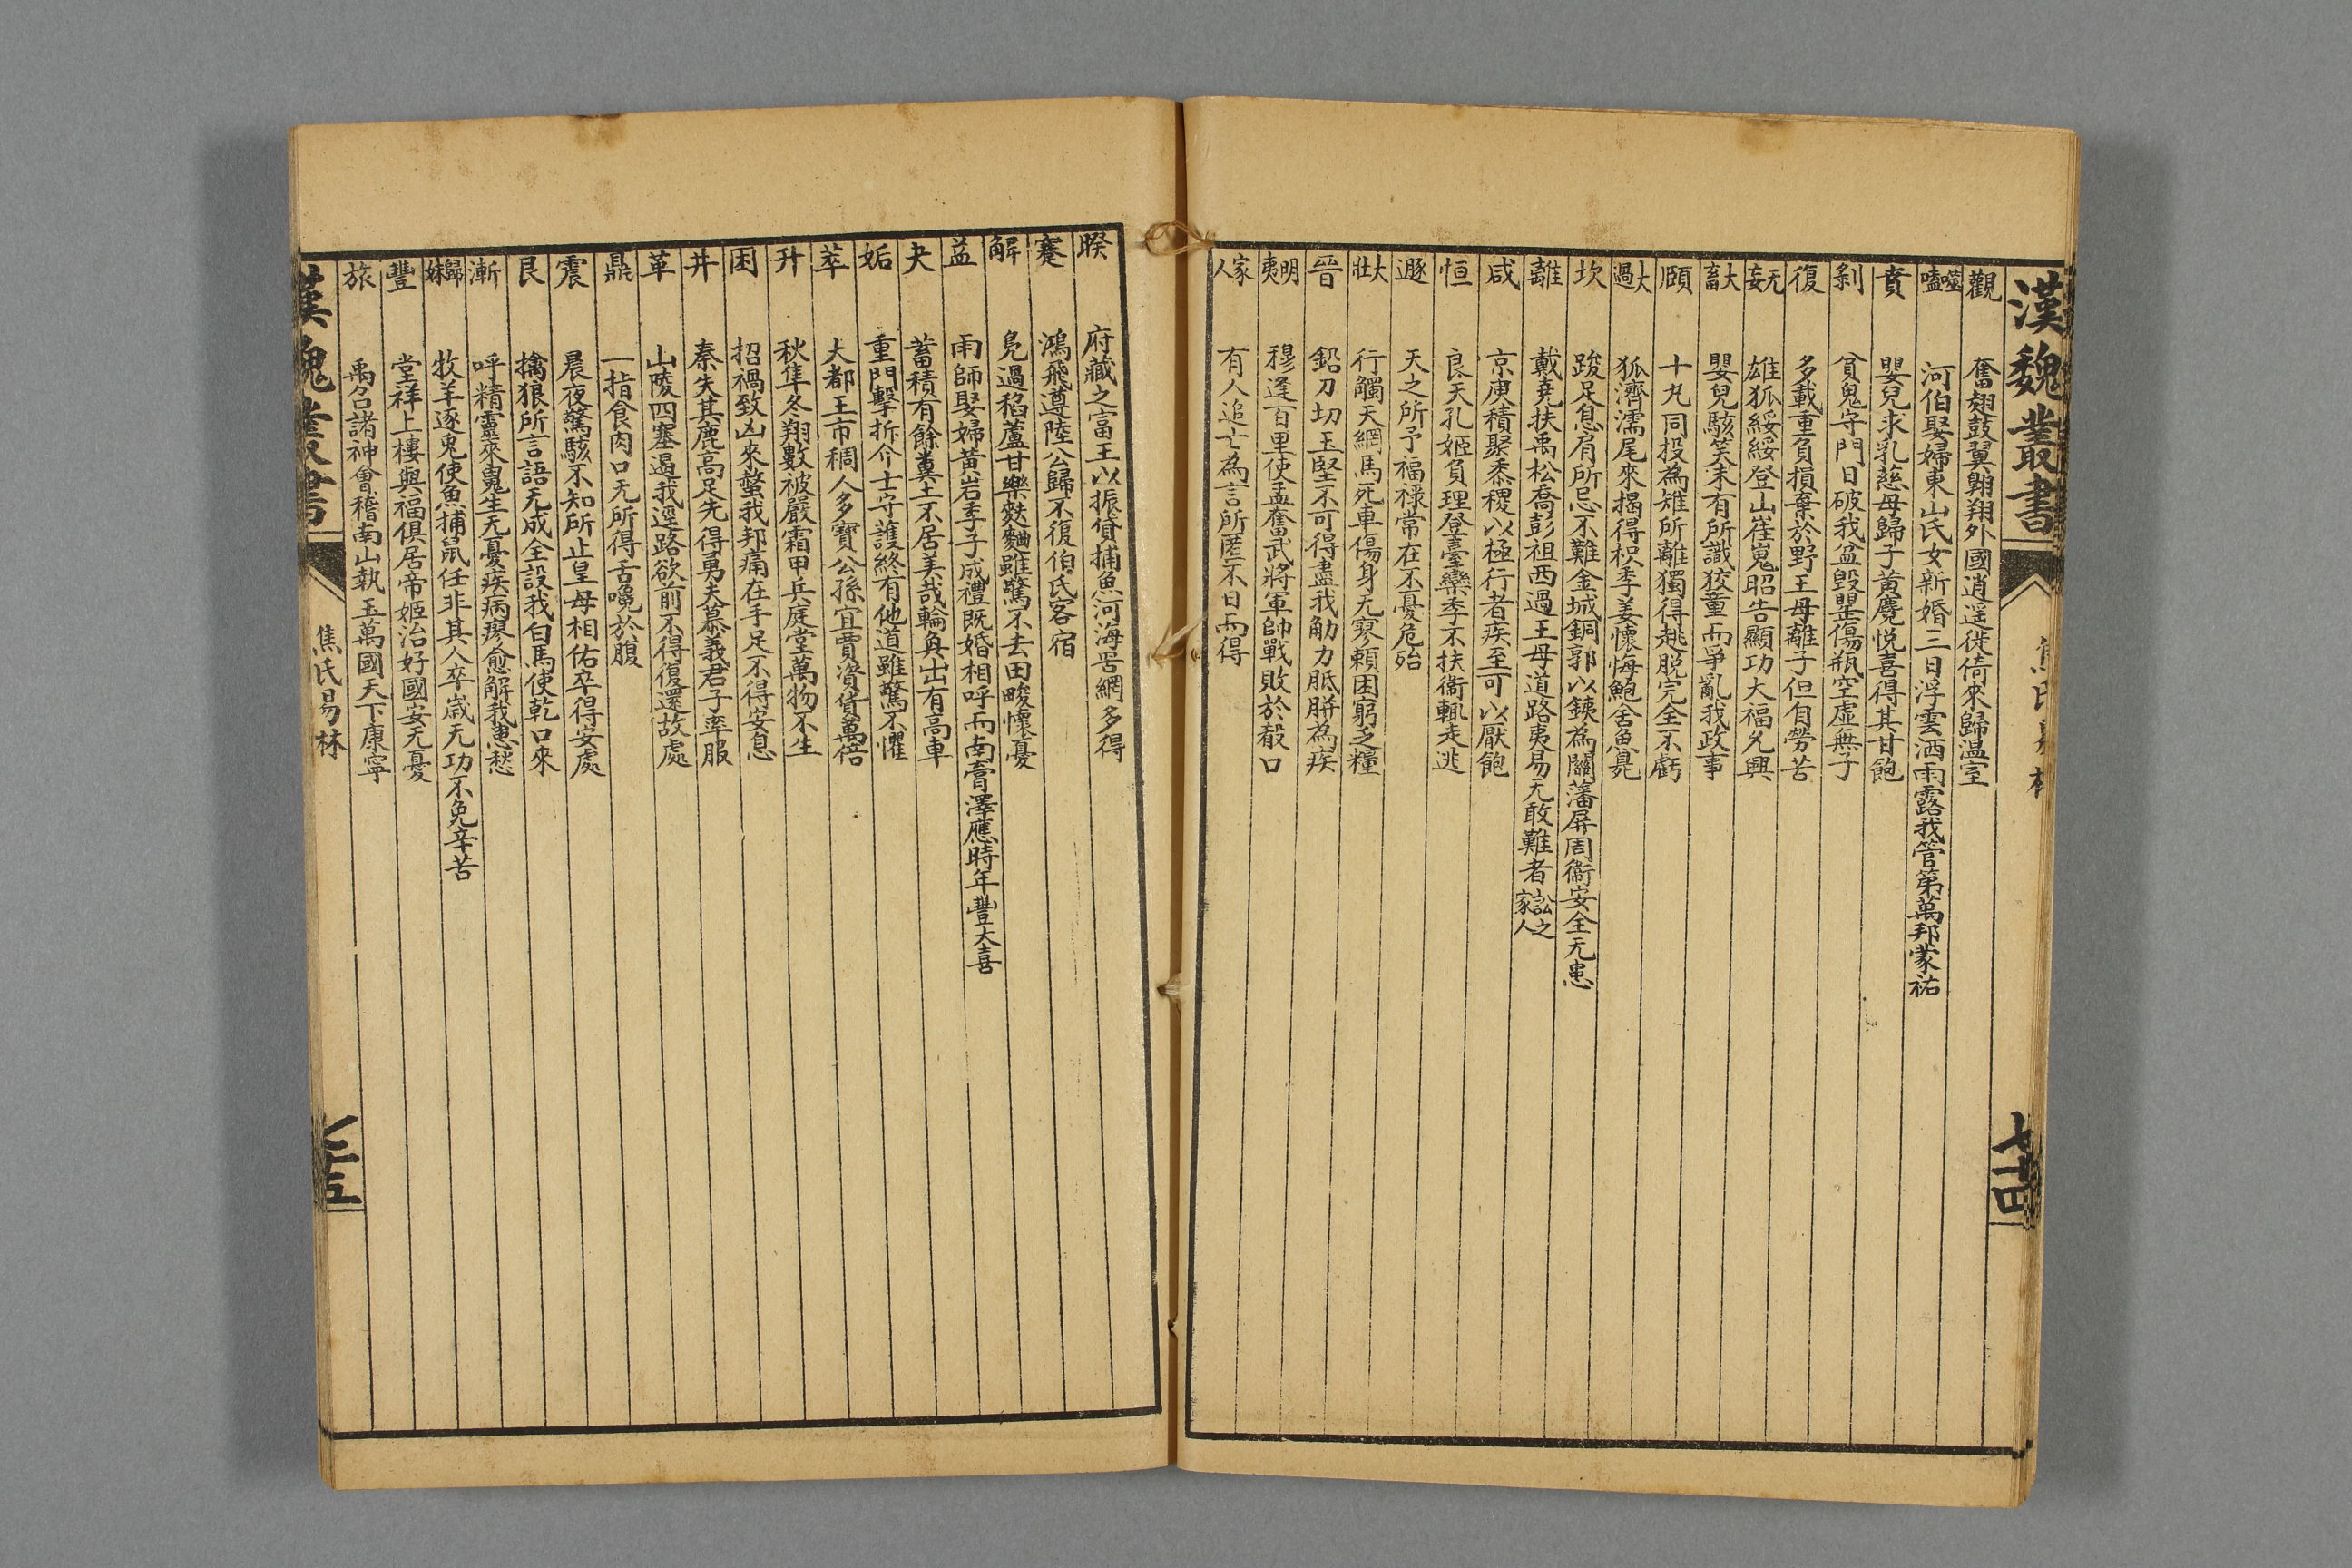 漢魏叢書 焦氏易林 七十四
觀 奮翅鼓翼翺翔外國逍遥徙倚來歸温室
噬嗑 河伯娶婦東山氏女新婚三日浮雲洒雨露我管第萬邦蒙祐
賁 嬰兒求乳慈母歸子黄麑悦喜得其甘飽
剝 貧鬼守門日破我盆毀罌傷瓶空虚無子
復 多載重負損棄於野王母離子但自勞苦
无妄 雄狐綏綏登山崔嵬昭告顯功大福允興
大畜 嬰兒駭笑未有所識狡童而爭亂我政事
頤 十丸同投為雉所離獨得逃脱完全不虧
大過 狐濟濡尾來揭得枳季姜懷悔鮑舍魚臭
坎 踆足息肩所忌不難金城銅郭以鐵為關藩屏周衞安全无患
離 戴堯扶禹松喬彭祖西過王母道路夷易无敢難者 訟之家人
咸 京庾積聚黍稷以極行者疾至可以厭飽
恒 良夫孔姬負理登臺欒季不扶衞輒走逃
遯 天之所予福禄常在不憂危殆
大壯 行觸天網馬死車傷身无寥頼困窮乏糧
晉 鉛刀切玉堅不可得盡我觔力胝胼為疾
明夷 穆逢百里使孟奮武將軍帥戰敗於殽口
家人 有人追亡為言所匿不日而得
睽 府藏之富王以振貸捕魚河海罟網多得
蹇 鴻飛遵陸公歸不復伯氏客宿
解 鳬過稻蘆甘樂䴭麯雖驚不去田畯懷憂
益 雨師娶婦黄岩季子成禮既婚相呼而南膏澤應時年豐大喜
夬 蓄積有餘糞土不居美哉輪奐出有高車
姤 重門擊拆介士守護終有他道雖驚不懼
萃 大都王市稠人多寶公孫宜賈資貨萬倍
升 秋隼冬翔數被嚴霜甲兵庭堂萬物不生
困 招禍致凶來螫我邦痛在手足不得安息
井 秦失其鹿高足先得勇夫慕義君子率服
革 山陵四塞遏我逕路欲前不得復還故處
鼎 一指食肉口无所得舌嚵於腹
震 晨夜驚駭不知所止皇母相佑卒得安處
艮 擒狼所言語无成全設我白馬使乾口來
漸 呼精靈來鬼生无憂疾病瘳愈解我患愁
歸妹 牧羊逐兎使魚捕鼠任非其人卒歳无功不免辛苦
豐 堂祥上樓與福俱居帝姬治好國安无憂
旅 禹召諸神會稽南山執玉萬國天下康寧
漢魏叢書 焦氏易林 七十五